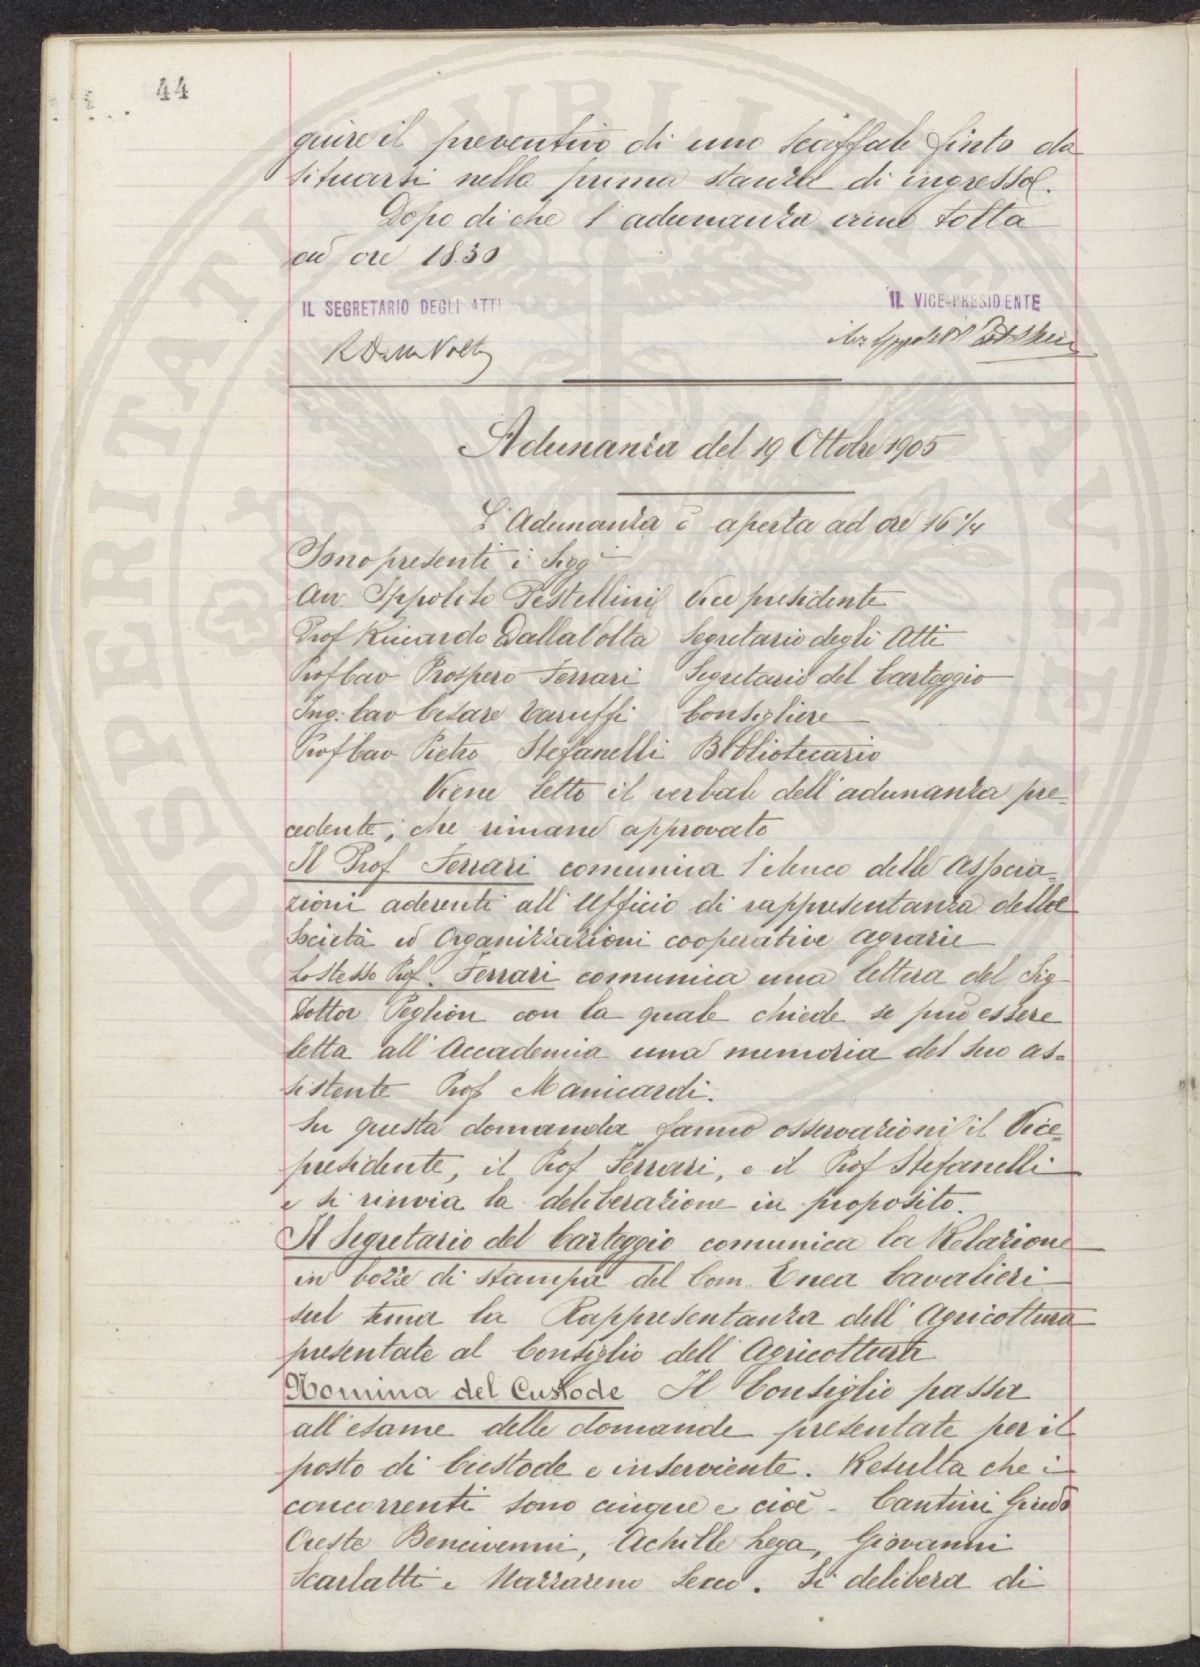 44
guire il preventivo di uno scaffale finto da
situarsi nella prima stanza di ingresso.
Dopo di che l'adunanza viene tolta
ad ore 18.30
IL SEGRETARIO DEGLI ATTI
IL VICE-PRESIDENTE
R Dalla Volta
Adunanza del 19 Ottobre 1905
L'Adunanza è aperta ad ore 16 1/4
Sono presenti i Sigg.i
Avv. Ippolito Pestellini Vice presidente
Prof Riccardo Dalla Volta Segretario degli Atti
Prof Cav Prospero Ferrari Segretario del Carteggio
Ing: Cav Cesare Caruffi Consigliere
Prof Cav Pietro Stefanelli Bibliotecario
Viene letto il verbale dell'adunanza pre-
cedente, che rimane approvato
Il Prof Ferrari comunica l'elenco delle Associa-
zioni aderenti all'Ufficio di rappresentanza delle
Società ed Organizzazioni cooperative agrarie
Lo stesso Prof. Ferrari comunica una lettera del Sig
Dottor Peglion con la quale chiede se può essere
letta all'Accademia una memoria del suo as-
sistente Prof Manicardi.
Su questa domanda fanno osservazioni il Vice-
presidente, il Prof Ferrari, e il Prof Stefanelli
e si rinvia la deliberazione in proposito.
Il Segretario del Carteggio comunica la Relazione
in bozze di stampa del Com. Enea Cavalieri
sul tema la Rappresentanza dell'Agricoltura
presentate al Consiglio dell'Agricoltura
Nomina del Custode Il Consiglio passa
all'esame delle domande presentate per il
posto di Custode e inserviente. Resulta che i
concorrenti sono cinque e cioè - Cantini Guido
Oreste Bencivenni, Achille Lega, Giovanni
Scarlatti e Nazzareno Secco. Si delibera di